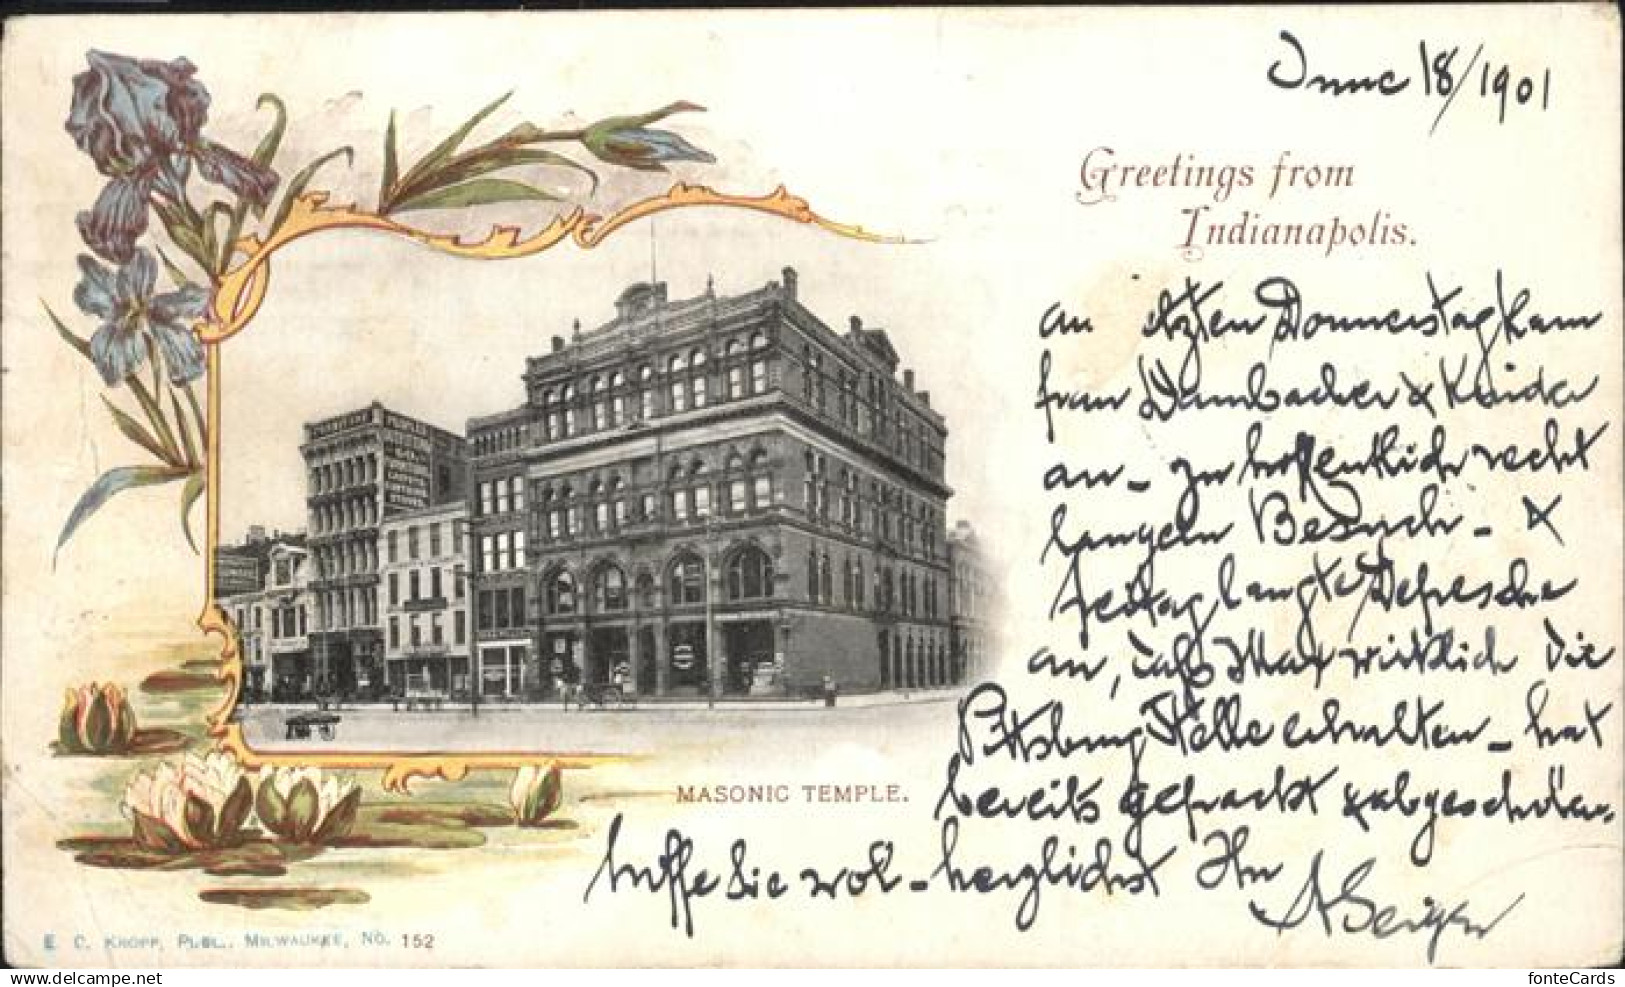 June 18/1901
Greetings from
Indianapolis.
an Donnerstag kam
frau Dambacher & Kinder
an - zu hoffentlich recht
langeln Besuch - &
freitag langte Depesche
an, Max wirklich die
Pittsburg Stelle erhalten - hat
bereits gepackt &
hoffe Sie wol - herzlichst Ihr
A Geiger
MASONIC TEMPLE.
E. C. KROPP, PUBL., MILWAUKEE, NO. 152
fonteCards